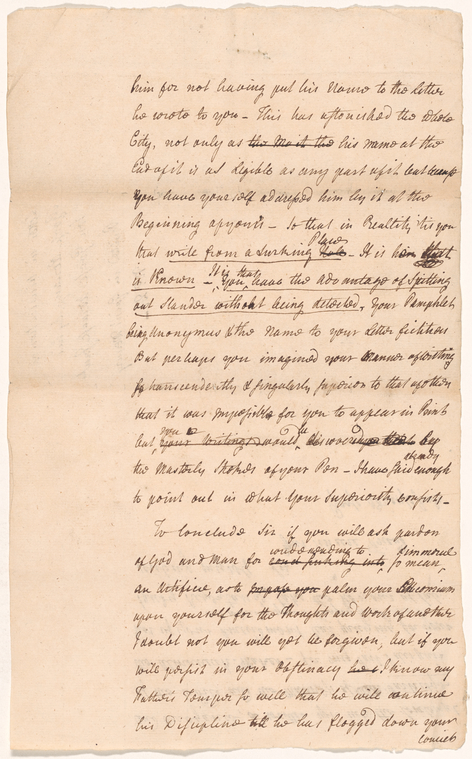 him for not having put his Name to the Letter
he wrote to you – This has astonished the whole
City, not only as the his name at the
End of it is as Legible as any part of it but
you have your self addressed him by it at the
Beginning of yours – So that in Reality tis you
Place
that write from a Lurking – It is
It is that
is Known – you have the advantage of Spitting
out Slander without being detected, your Pamphlet
being Anonymous & the Name to your Letter fictitious
But perhaps you imagined your Manner of Writing
so transcendently & singularly superior to that of others
that it was impossible for you to appear in Print
you be
but your Writings would discovered by
already
the Masterly Strokes of your Pen – I have said enough
to point out in what your Superiority consists –
To Conclude Sir if you will ask pardon
condescending to & immoral
of God and Man for so mean
an Artifice, as to impose you palm your Encomium
upon yourself for the Thoughts and Work of another
I doubt not you will yet be forgiven, but if you
will persist in your Obstinacy I know my
Fathers Temper so well that he will continue
his Discipline till he has flogged down your